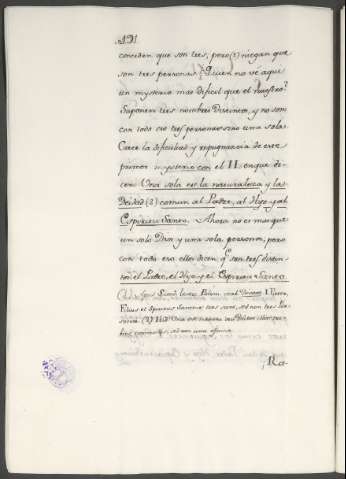 conceden que son tres, pero (1) niegan que
son tres personas. ¿Quien no vé aqui
un mysterio mas dificil que el nuestro?
Suponen tres nombres Divinos, y no son
con todo eso tres personas sino una sola.
Cotege la dificultad y repugnancia de este
primer mysterio con el II. en que dicen:
Una sola es la naturaleza y la
Deidad (2) comun al Padre, al Hijo y al
Espiritu Santo. Ahora no es mas que
un solo Dios y una sola persona, pero
con todo eso ellos dicen qe. son tres distintos
el Padre, el Hijo y el Espiritu Santo
Filius et Spiritus Sanctus tres sunt, sed non tres
Ra-